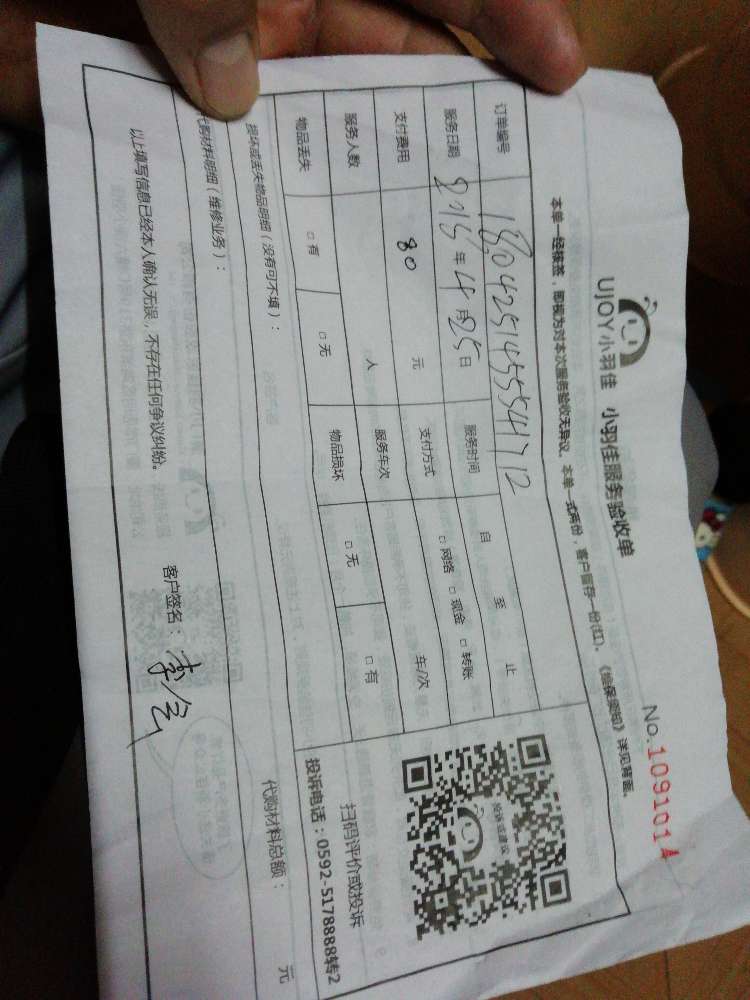 UJOY小羽佳 小羽佳服务验收单
No.1091014
本单一经核签，即视为对本次服务验收无异议，本单一式两份，客户留存一份(红)。《维保须知》详见背面。
订单编号 1804251455541712
服务日期 2018年4月25日 服务时间 自 至 止
支付费用 80 元 支付方式 □网络 □现金 □转账
服务人数 人 服务车次 车/次
物品丢失 □有 □无 物品损坏 □无 □有
纠纷或建议
扫码评价或投诉
投诉电话：0592-5178888转2
损坏或丢失物品明细（没有可不填）：
代购材料明细（维修业务）： 代购材料总额： 元
以上填写信息已经本人确认无误，不存在任何争议纠纷。 客户签名：